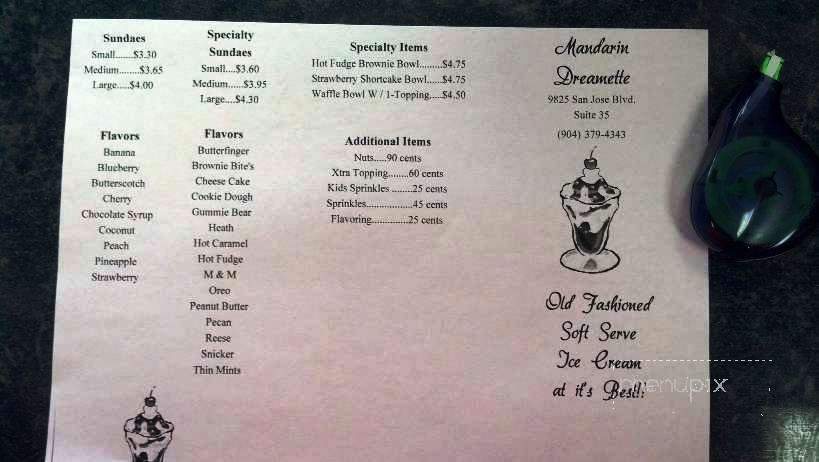 Sundaes
Small.......$3.30
Medium........$3.65
Large.....$4.00
Flavors
Banana
Blueberry
Butterscotch
Cherry
Chocolate Syrup
Coconut
Peach
Pineapple
Strawberry
Specialty
Sundaes
Small....$3.60
Medium......$3.95
Large....$4.30
Flavors
Butterfinger
Brownie Bite's
Cheese Cake
Cookie Dough
Gummie Bear
Heath
Hot Caramel
Hot Fudge
M & M
Oreo
Peanut Butter
Pecan
Reese
Snicker
Thin Mints
Specialty Items
Hot Fudge Brownie Bowl.........$4.75
Strawberry Shortcake Bowl......$4.75
Waffle Bowl W / 1-Topping.....$4.50
Additional Items
Nuts.....90 cents
Xtra Topping........60 cents
Kids Sprinkles ........25 cents
Sprinkles..................45 cents
Flavoring..............25 cents
Mandarin
Dreamette
9825 San Jose Blvd.
Suite 35
(904) 379-4343
Old Fashioned
Soft Serve
Ice Cream
at it's Best!!
menupix